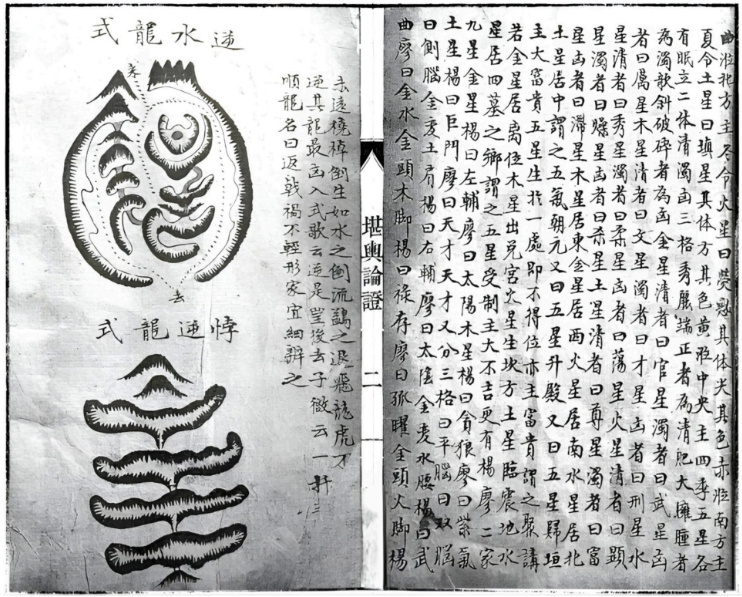 曲涖北方主冬令火星曰熒惑其体尖其色赤涖南方主
夏令土星曰填星其体方其色黄涖中央主四季五星各
有眠立二体清濁凶三格秀麗端正者為清肥大擁腫者
為濁欹斜破碎者為凶金星清者曰官星濁者曰武星凶
者曰厲星木星清者曰文星濁者曰才星凶者曰刑星水
星清者曰秀星濁者曰柔星凶者曰蕩星火星清者曰顯
星濁者曰燥星凶者曰杀星土星清者曰尊星濁者曰富
星凶者曰滯星木星居東金星居西火星居南水星居北
土星居中謂之五氣朝元又曰五星升殿又曰五星歸垣
主大富貴五星生於一處即不得位亦主富貴謂之聚講
若金星居离位木星出兑宮火星生坎方土星臨震地水
星居四墓之鄉謂之五星受制主大不吉更有楊廖二家
九星金星楊曰左輔廖曰太陽木星楊曰貪狼廖曰紫氣
土星楊曰巨門廖曰天才天才又分三格曰平腦曰双腦
曰側腦金变土肩楊曰右輔廖曰太陰金变水腰楊曰武
曲廖曰金水金頭木脚楊曰禄存廖曰孤曜金頭火脚楊
堪輿論證
二
逆水龍式
来
去
赤遠橈棹倒生如水之倒流鷁之退飛龍虎才
逆其龍最凶入式歌云逆是望後去子微云一幹三
順龍名曰返戟禍不輕形家宜細辭之
悖逆龍式